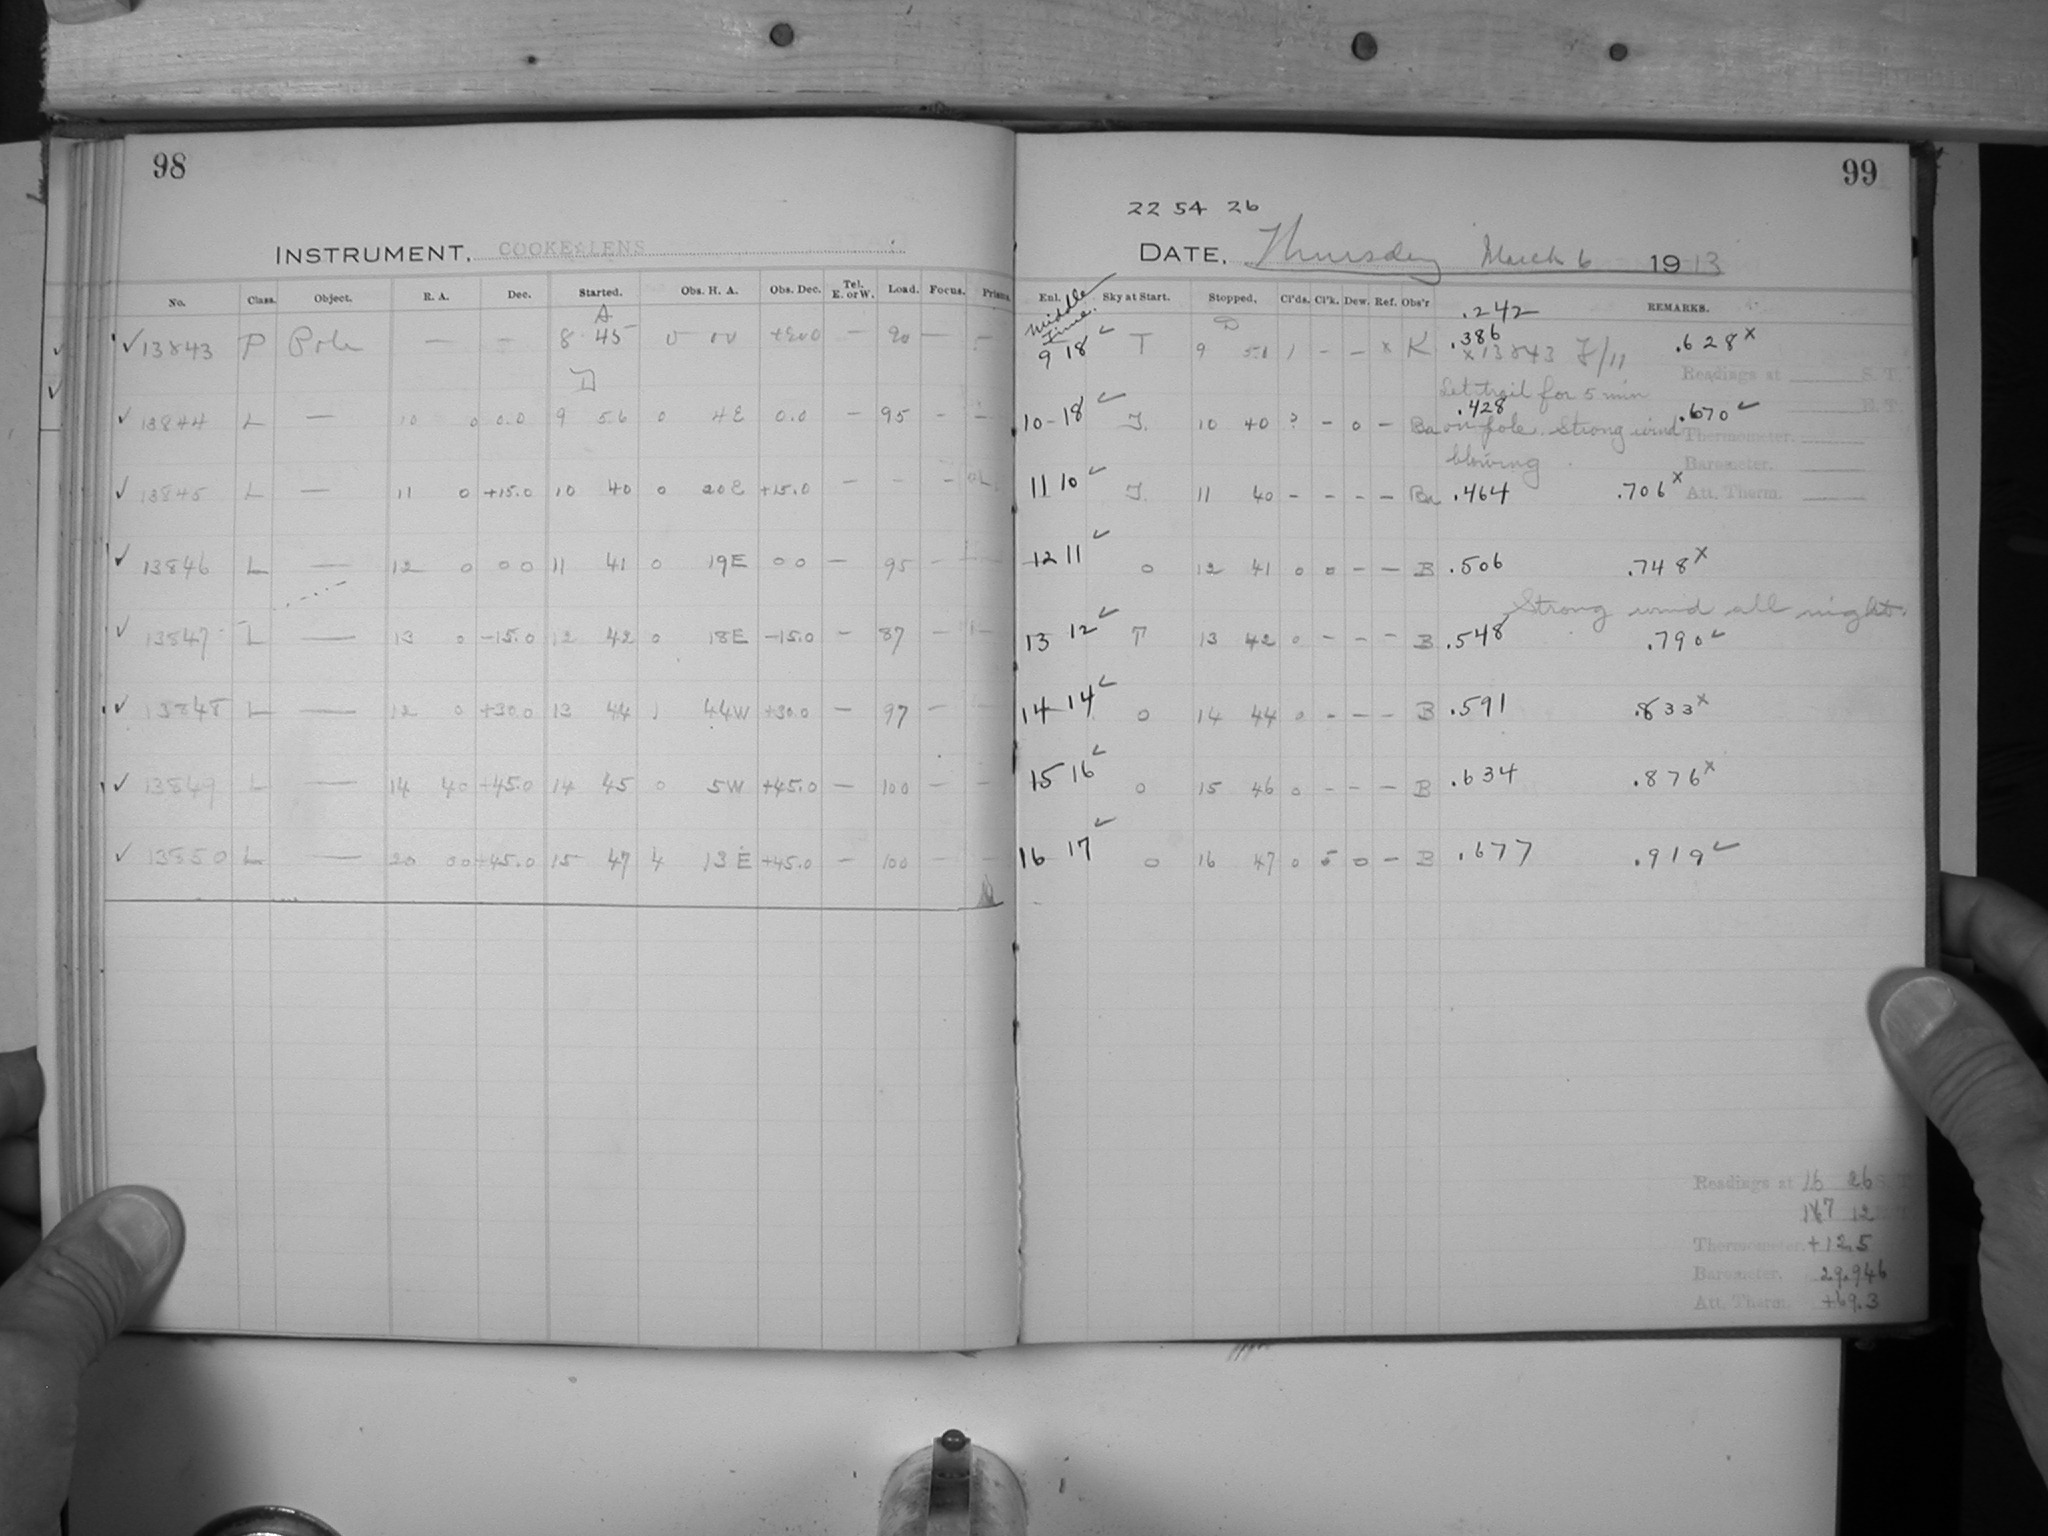 98
INSTRUMENT. COOKE LENS
No. Class. Object. R. A. Dec. Started. Obs. H. A. Obs. Dec. Tel. E. or W. Load. Focus. Prisms.
A
✓ 13843 P Pole — — 8 45 0 00 — 90 — —
D
✓ 13844 L — 10 0 0.0 9 56 0 4E 0.0 — 95 - —
✓ 13845 L — 11 0 +15.0 10 40 0 20E +15.0 — - -
✓ 13846 L — 12 0 00 11 41 0 19E 00 — 95 — —
✓ 13847 L — 13 0 -15.0 12 42 0 18E -15.0 — 87 — —
✓ 13848 L — 12 0 +30.0 13 44 1 44W +30.0 — 97 — —
✓ 13849 L — 14 40 +45.0 14 45 0 5W +45.0 — 100 — —
✓ 13850 L — 20 00 +45.0 15 47 4 13E +45.0 — 100 — —
99
22 54 26
DATE. Thursday March 6 1913
Enl. Sky at Start. Stopped. Cl'ds. Cl'k. Dew. Ref. Obs'r REMARKS.
Middle Time.
.242
D
9 18 ✓ T 9 51 1 - — x K .386 .628 x
x 13843 F/11
Readings at S. T.
Let trail for 5 min
10-18 ✓ T. 10 40 ? - 0 — Ba .428 .670 ✓
on pole. Strong wind
Thermometer.
blowing
Barometer.
11 10 ✓ T. 11 40 - - - - Ba .464 .706 x
Att. Therm.
12 11 ✓ 0 12 41 0 0 - — B .506 .748 x
Strong wind all night.
13 12 ✓ T 13 42 0 - - - B .548 .790 ✓
14 14 ✓ 0 14 44 0 - - — B .591 .833 x
15 16 ✓ 0 15 46 0 - - — B .634 .876 x
16 17 ✓ 0 16 47 0 5 0 — B .677 .919 ✓
Readings at 16 26 S. T.
17 12
Thermometer. +12.5
Barometer. 29.946
Att. Therm. +69.3